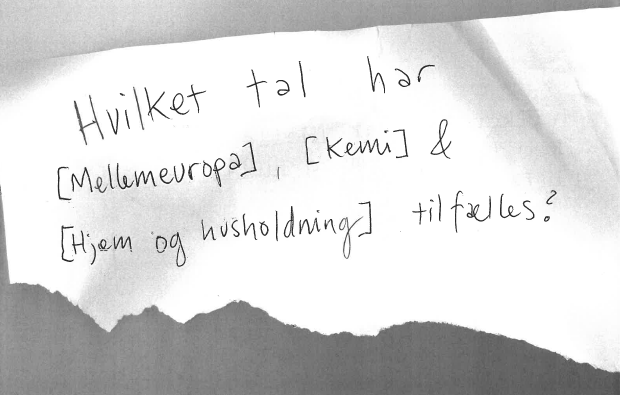 Hvilket tal har
[Mellemeuropa], [Kemi] &
[Hjem og husholdning] tilfælles?